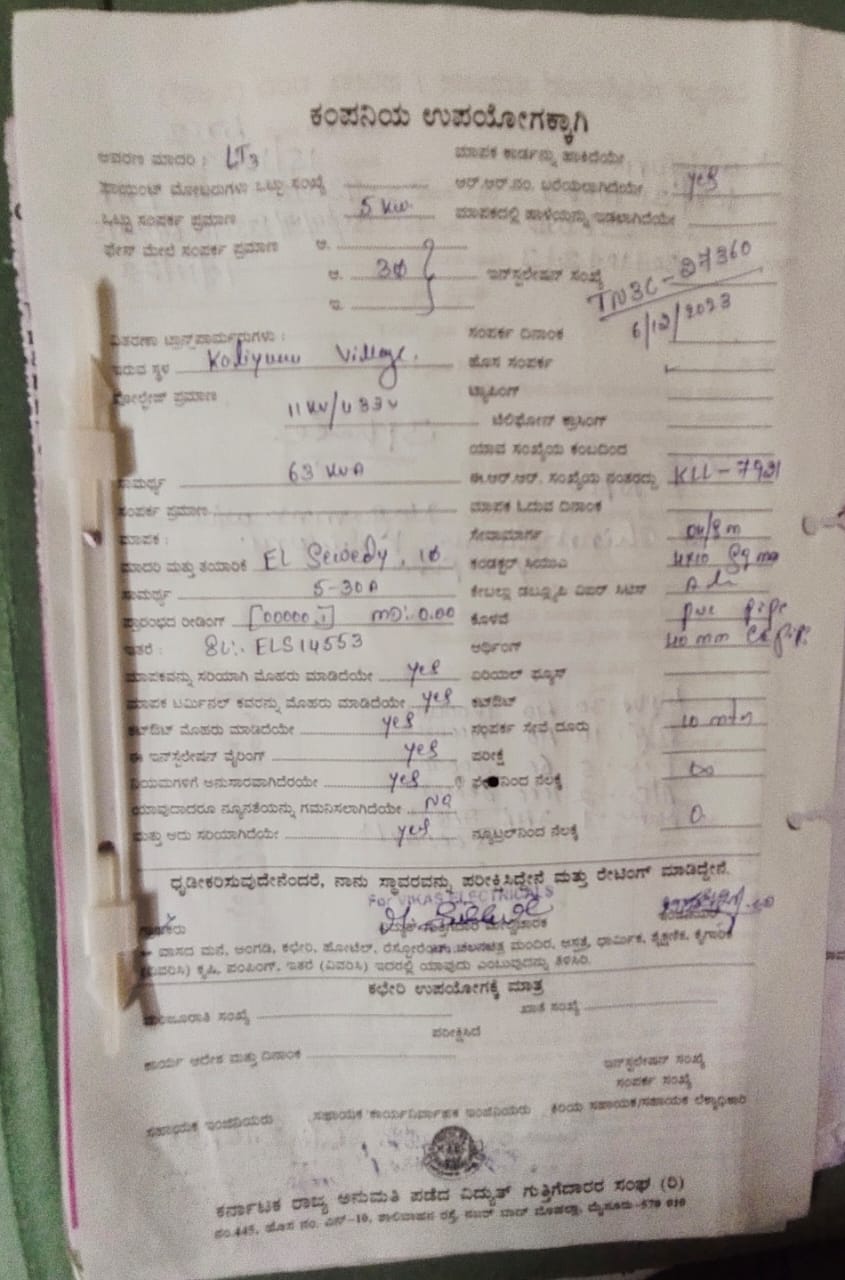 ಕಂಪನಿಯ ಉಪಯೋಗಕ್ಕಾಗಿ
ಆವರಣ ಮಾದರಿ : LT3 ಮಾಪಕ ಕಾರ್ಡನ್ನು ಹಾಕಿದೆಯೇ
ಪಾಯಿಂಟ್ ಮೋಟರುಗಳ ಒಟ್ಟು ಸಂಖ್ಯೆ ಆರ್.ಆರ್.ನಂ. ಬರೆಯಲಾಗಿದೆಯೇ yes
ಒಟ್ಟು ಸಂಪರ್ಕ ಪ್ರಮಾಣ 5 KW ಮಾಪಕದಲ್ಲಿ ಹಾಳೆಯನ್ನು ಇಡಲಾಗಿದೆಯೇ
ಫೇಸ್ ಮೇಲೆ ಸಂಪರ್ಕ ಪ್ರಮಾಣ
3Ø ಇನ್‌ಸ್ಟಲೇಷನ್ ಸಂಖ್ಯೆ TN3C-27360
6/12/2023
ವಿತರಣಾ ಟ್ರಾನ್ಸ್‌ಫಾರ್ಮರುಗಳು : ಸಂಪರ್ಕ ದಿನಾಂಕ
ಇರುವ ಸ್ಥಳ Village. ಹೊಸ ಸಂಪರ್ಕ
ವೋಲ್ಟೇಜ್ ಪ್ರಮಾಣ 11 KV/433V ಟ್ಯಾಪಿಂಗ್
ಟೆಲಿಫೋನ್ ಕ್ರಾಸಿಂಗ್
ಯಾವ ಸಂಖ್ಯೆಯ ಕಂಬದಿಂದ
ಸಾಮರ್ಥ್ಯ 63 KVA ಈ.ಆರ್.ಆರ್. ಸಂಖ್ಯೆಯ ನಂತರದ್ದು KLL-7921
ಸಂಪರ್ಕ ಪ್ರಮಾಣ ಮಾಪಕ ಓದುವ ದಿನಾಂಕ
ಮಾಪಕ : ಸೇವಾಮಾರ್ಗ
ಮಾದರಿ ಮತ್ತು ತಯಾರಿಕೆ EL Sewedy, 1Ø ಕಂಡಕ್ಟರ್
ಸಾಮರ್ಥ್ಯ 5-30A
ಪ್ರಾರಂಭದ ರೀಡಿಂಗ್ [00000.1] MD:-0.00 ಕೊಳವೆ pvc pipe
ಇತರೆ : SL:- ELS14553 ಅರ್ಥಿಂಗ್ 40 mm
ಮಾಪಕವನ್ನು ಸರಿಯಾಗಿ ಮೊಹರು ಮಾಡಿದೆಯೇ yes ಏರಿಯಲ್ ಫ್ಯೂಸ್
ಮಾಪಕ ಟರ್ಮಿನಲ್ ಕವರನ್ನು ಮೊಹರು ಮಾಡಿದೆಯೇ yes ಕಟ್‌ಔಟ್
ಕಟ್‌ಔಟ್ ಮೊಹರು ಮಾಡಿದೆಯೇ yes ಸಂಪರ್ಕ ಸೇವೆ ದೂರು 10 mtr
ಈ ಇನ್‌ಸ್ಟಲೇಷನ್ ವೈರಿಂಗ್ yes ಪರೀಕ್ಷೆ
ನಿಯಮಗಳಿಗೆ ಅನುಸಾರವಾಗಿದೆಯೇ yes ನಿಂದ ನೆಲಕ್ಕೆ ∞
ಯಾವುದಾದರೂ ನ್ಯೂನತೆಯನ್ನು ಗಮನಿಸಲಾಗಿದೆಯೇ No
ಮತ್ತು ಅದು ಸರಿಯಾಗಿದೆಯೇ yes ನ್ಯೂಟ್ರಲ್‌ನಿಂದ ನೆಲಕ್ಕೆ 0
ಧೃಡೀಕರಿಸುವುದೇನೆಂದರೆ, ನಾನು ಸ್ಥಾವರವನ್ನು ಪರೀಕ್ಷಿಸಿದ್ದೇನೆ ಮತ್ತು ರೇಟಿಂಗ್ ಮಾಡಿದ್ದೇನೆ.
For VIKAS ELECTRICALS
ವಾಸದ ಮನೆ, ಅಂಗಡಿ, ಕಛೇರಿ, ಹೋಟೆಲ್, ಚಲನಚಿತ್ರ ಮಂದಿರ, ಆಸ್ಪತ್ರೆ, ಧಾರ್ಮಿಕ, ಶೈಕ್ಷಣಿಕ, ಕೈಗಾರಿಕೆ
(ವಿವರಿಸಿ) ಕೃಷಿ, ಪಂಪಿಂಗ್, ಇತರೆ (ವಿವರಿಸಿ) ಇದರಲ್ಲಿ ಯಾವುದು ಎಂಬುವುದನ್ನು ತಿಳಿಸಿರಿ.
ಕಛೇರಿ ಉಪಯೋಗಕ್ಕೆ ಮಾತ್ರ
ಮಂಜೂರಾತಿ ಸಂಖ್ಯೆ ಖಾತೆ ಸಂಖ್ಯೆ
ಪರೀಕ್ಷಿಸಿದೆ
ಕಾರ್ಯ ಆದೇಶ ಮತ್ತು ದಿನಾಂಕ ಇನ್‌ಸ್ಟಲೇಷನ್ ಸಂಖ್ಯೆ
ಸಂಪರ್ಕ ಸಂಖ್ಯೆ
ಸಹಾಯಕ ಇಂಜಿನಿಯರು ಸಹಾಯಕ ಕಾರ್ಯನಿರ್ವಾಹಕ ಇಂಜಿನಿಯರು ಕಿರಿಯ ಸಹಾಯಕ/ಸಹಾಯಕ ಲೆಕ್ಕಾಧಿಕಾರಿ
ಕರ್ನಾಟಕ ರಾಜ್ಯ ಅನುಮತಿ ಪಡೆದ ವಿದ್ಯುತ್ ಗುತ್ತಿಗೆದಾರರ ಸಂಘ (ರಿ)
ನಂ.445, ಹೊಸ ನಂ. ಎನ್-10, ಶಾಲಿವಾಹನ ರಸ್ತೆ, ನಜರ್ ಬಾದ್ ಮೊಹಲ್ಲಾ, ಮೈಸೂರು-570 010